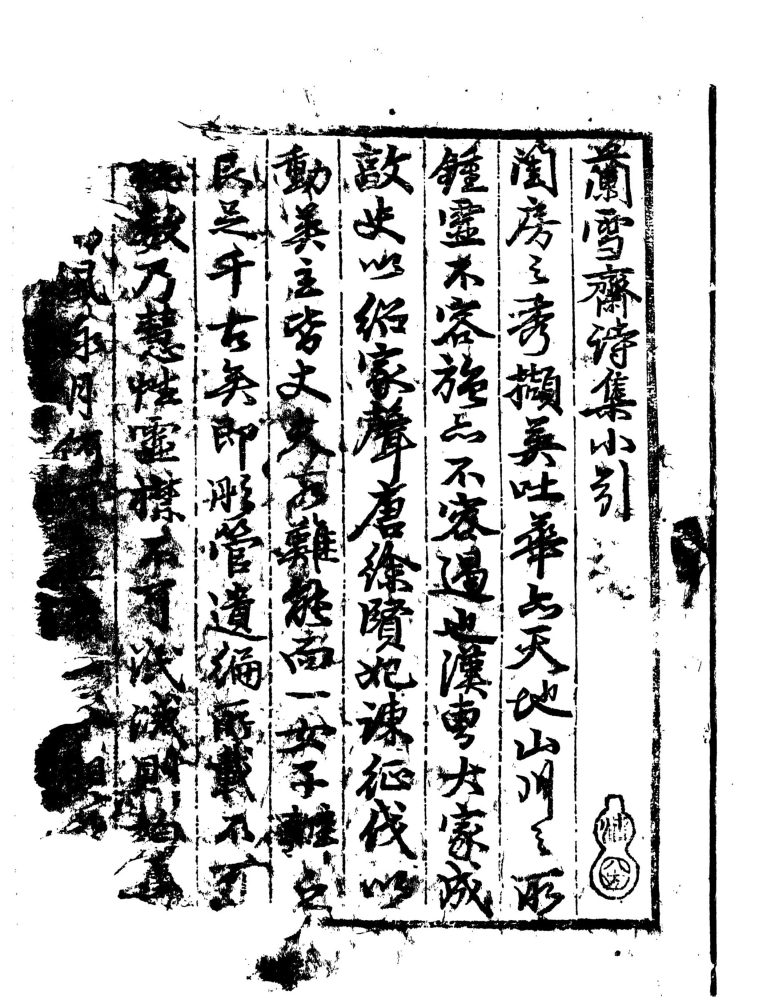 蘭雪齋詩集小引
閨房之秀擷英吐華亦天地山川之所
鍾靈不容強亦不容遏也漢曹大家成
敦史以紹家聲唐徐賢妃諫征伐以
動英主皆丈夫所難能而一女子辦之
良足千古矣即彤管遺編所載不可
數乃慧性靈襟不可泯滅則均焉
風詠月何